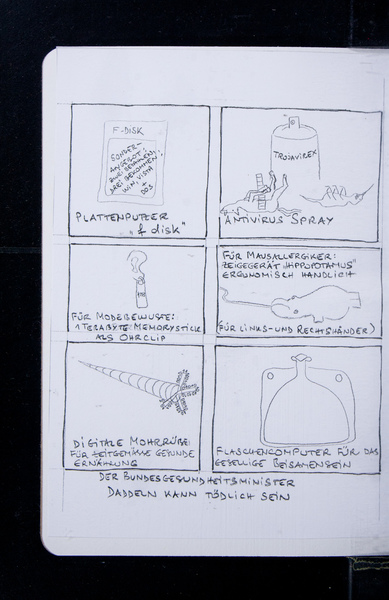 F-DISK
SONDER-
ANGEBOT:
ZWEI BEZAHLEN,
DREI BEKOMMEN:
WIN, VISTA
+
DOS
PLATTENPUTZER
"f disk"
TROJAVIREX
ANTIVIRUS SPRAY
FÜR MODEBEWUSTE:
1 TERABYTE MEMORYSTICK
ALS OHRCLIP
FÜR MAUSALLERGIKER:
ZEIGEGERÄT "HIPPOPOTAMUS"
ERGONOMISCH HANDLICH
(FÜR LINKS- UND RECHTSHÄNDER)
DIGITALE MOHRRÜBE:
FÜR ZEITGEMÄSSE GESUNDE
ERNÄHRUNG
FLASCHENCOMPUTER FÜR DAS
GESELLIGE BEISAMENSEIN
DER BUNDESGESUNDHEITSMINISTER
DADDELN KANN TÖDLICH SEIN